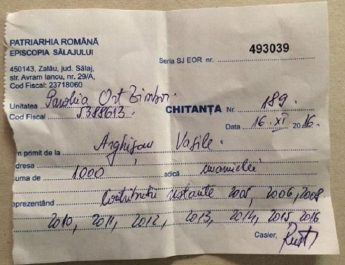 PATRIARHIA ROMÂNĂ
EPISCOPIA SĂLAJULUI
450143, Zalău, jud. Sălaj,
str. Avram Iancu, nr. 29/A,
Cod Fiscal: 23718060
Seria SJ EOR nr. 493039
Unitatea Parohia Ort
Cod Fiscal
CHITANȚA Nr. 189
Data 16 XI 2016
m primit de la Vasile
dresa
suma de 1000 adică unamielei
eprezentând Contributii restante 2005, 2006, 2008
2010, 2011, 2012, 2013, 2014, 2015, 2016
Casier,